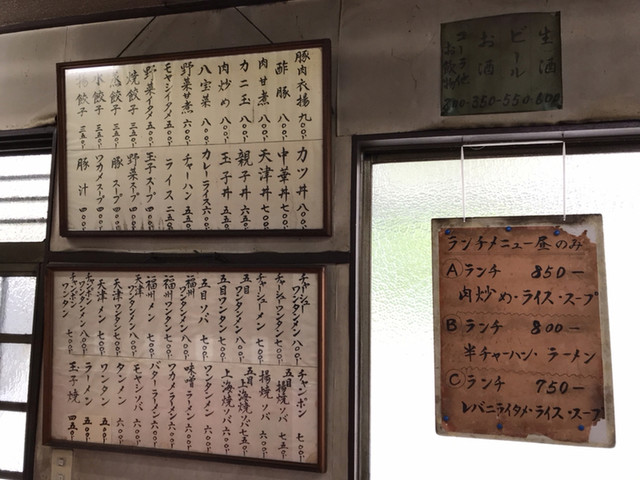 豚肉衣揚 九〇〇
酢豚 八〇〇
肉甘煮 八〇〇
カニ玉 八〇〇
肉炒め 八〇〇
八宝菜 八〇〇
野菜甘煮 六〇〇
モヤシイタメ 五〇〇
野菜イタメ 五〇〇
焼餃子 三五〇
蒸餃子 三五〇
水餃子 三五〇
揚餃子 三五〇
カツ丼 八〇〇
中華丼 七〇〇
天津丼 七〇〇
親子丼 六五〇
玉子丼 五五〇
カレーライス 六〇〇
チャーハン 五五〇
ライス 二五〇
玉子スープ 四〇〇
野菜スープ 四〇〇
豚スープ 四〇〇
ワカメスープ 四〇〇
豚汁 四〇〇
チャーシューワンタンメン 八〇〇
チャーシューワンタン 七〇〇
チャーシューメン 七〇〇
五目ワンタンメン 八〇〇
五目ワンタン 七〇〇
五目ソバ 七〇〇
福州ワンタンメン 八〇〇
福州メン 七〇〇
天津ワンタンメン 八〇〇
天津ワンタン 七〇〇
天津メン 七〇〇
チャンポンワンタン 七〇〇
チャンポン 七〇〇
五目揚焼ソバ 七五〇
揚焼ソバ 六〇〇
五目上海焼ソバ 七五〇
上海焼ソバ 六〇〇
ワンタンメン 六〇〇
味噌ラーメン 六〇〇
ワカメラーメン 六〇〇
バターラーメン 六〇〇
モヤシソバ 六〇〇
タンメン 六〇〇
ワンタン 五〇〇
ラーメン 五〇〇
玉子焼 四五〇
生酒 600
ビール 550
お酒 350
ランチメニュー昼のみ
Ⓐランチ 850−
肉炒め・ライス・スープ
Ⓑランチ 800−
半チャーハン・ラーメン
Ⓒランチ 750−
レバニライタメ・ライス・スープ